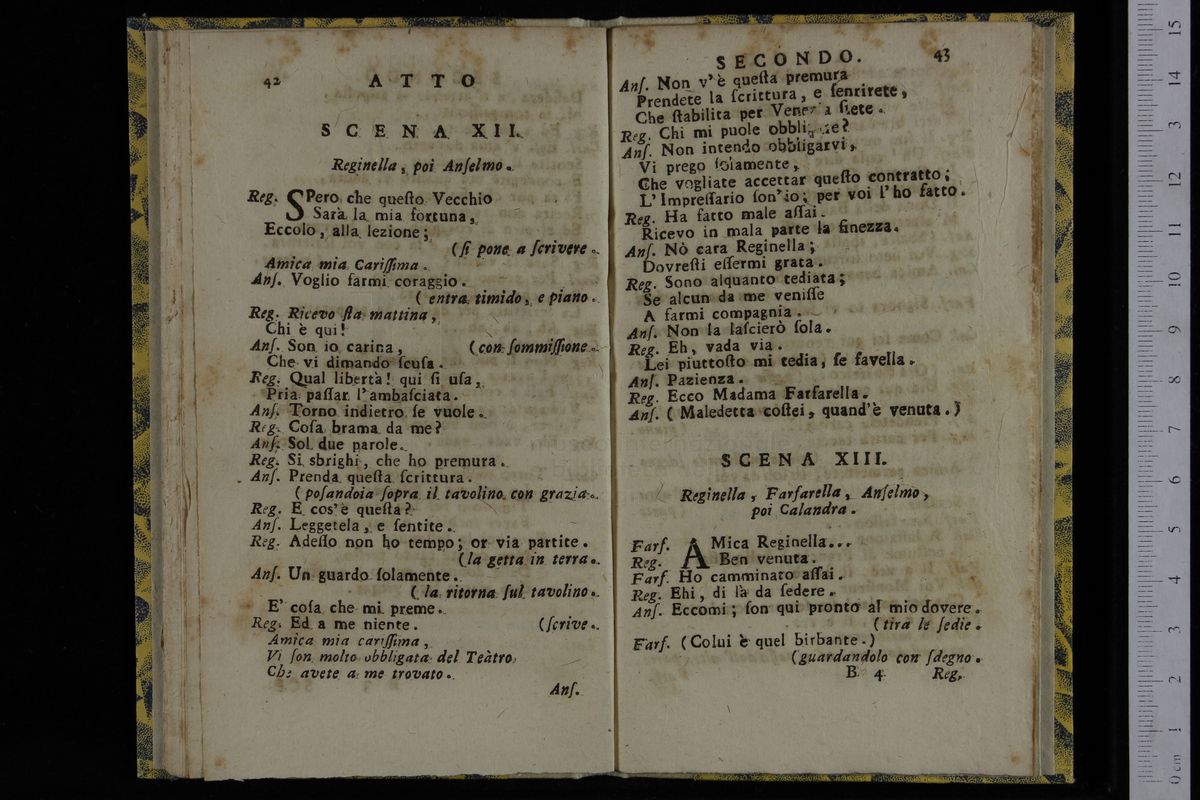 42 ATTO
SCENA XII.
Reginella, poi Anſelmo.
Reg. SPero che queſto Vecchio
Sarà la mia fortuna,
Eccolo, alla lezione;
(ſi pone a ſcrivere.
Amica mia Cariſſima.
Anſ. Voglio farmi coraggio.
(entra timido, e piano.
Reg. Ricevo ſta mattina,
Chi è qui!
Anſ. Son io carina, (con ſommiſſione.
Che vi dimando ſcuſa.
Reg. Qual libertà! qui ſi uſa,
Pria paſſar l'ambaſciata.
Anſ. Torno indietro ſe vuole.
Reg. Coſa brama da me?
Anſ. Sol due parole.
Reg. Si sbrighi, che ho premura.
Anſ. Prenda queſta ſcrittura.
(poſandola ſopra il tavolino con grazia.
Reg. E cos'è queſta?
Anſ. Leggetela, e ſentite.
Reg. Adeſſo non ho tempo; or via partite.
(la getta in terra.
Anſ. Un guardo ſolamente.
(la ritorna ſul tavolino.
E' coſa che mi preme.
Reg. Ed a me niente. (ſcrive.
Amica mia cariſſima,
Vi ſon molto obbligata del Teàtro,
Che avete a me trovato.
Anſ.
SECONDO. 43
Anſ. Non v'è queſta premura
Prendete la ſcrittura, e ſentirete,
Che ſtabilita per Venezia ſiete.
Reg. Chi mi puole obbligare?
Anſ. Non intendo obbligarvi,
Vi prego ſolamente,
Che vogliate accettar queſto contratto;
L'Impreſſario ſon'io; per voi l'ho fatto.
Reg. Ha fatto male aſſai.
Ricevo in mala parte la finezza.
Anſ. Nò cara Reginella;
Dovreſti eſſermi grata.
Reg. Sono alquanto tediata;
Se alcun da me veniſſe
A farmi compagnia.
Anſ. Non la laſcierò ſola.
Reg. Eh, vada via.
Lei piuttoſto mi tedia, ſe favella.
Anſ. Pazienza.
Reg. Ecco Madama Farfarella.
Anſ. (Maledetta coſtei, quand'è venuta.)
SCENA XIII.
Reginella, Farfarella, Anſelmo,
poi Calandra.
Farf. AMica Reginella...
Reg. Ben venuta.
Farf. Ho camminato aſſai.
Reg. Ehi, di là da ſedere.
Anſ. Eccomi; ſon qui pronto al mio dovere.
(tira le ſedie.
Farf. (Colui è quel birbante.)
(guardandolo con ſdegno.
B 4 Reg.